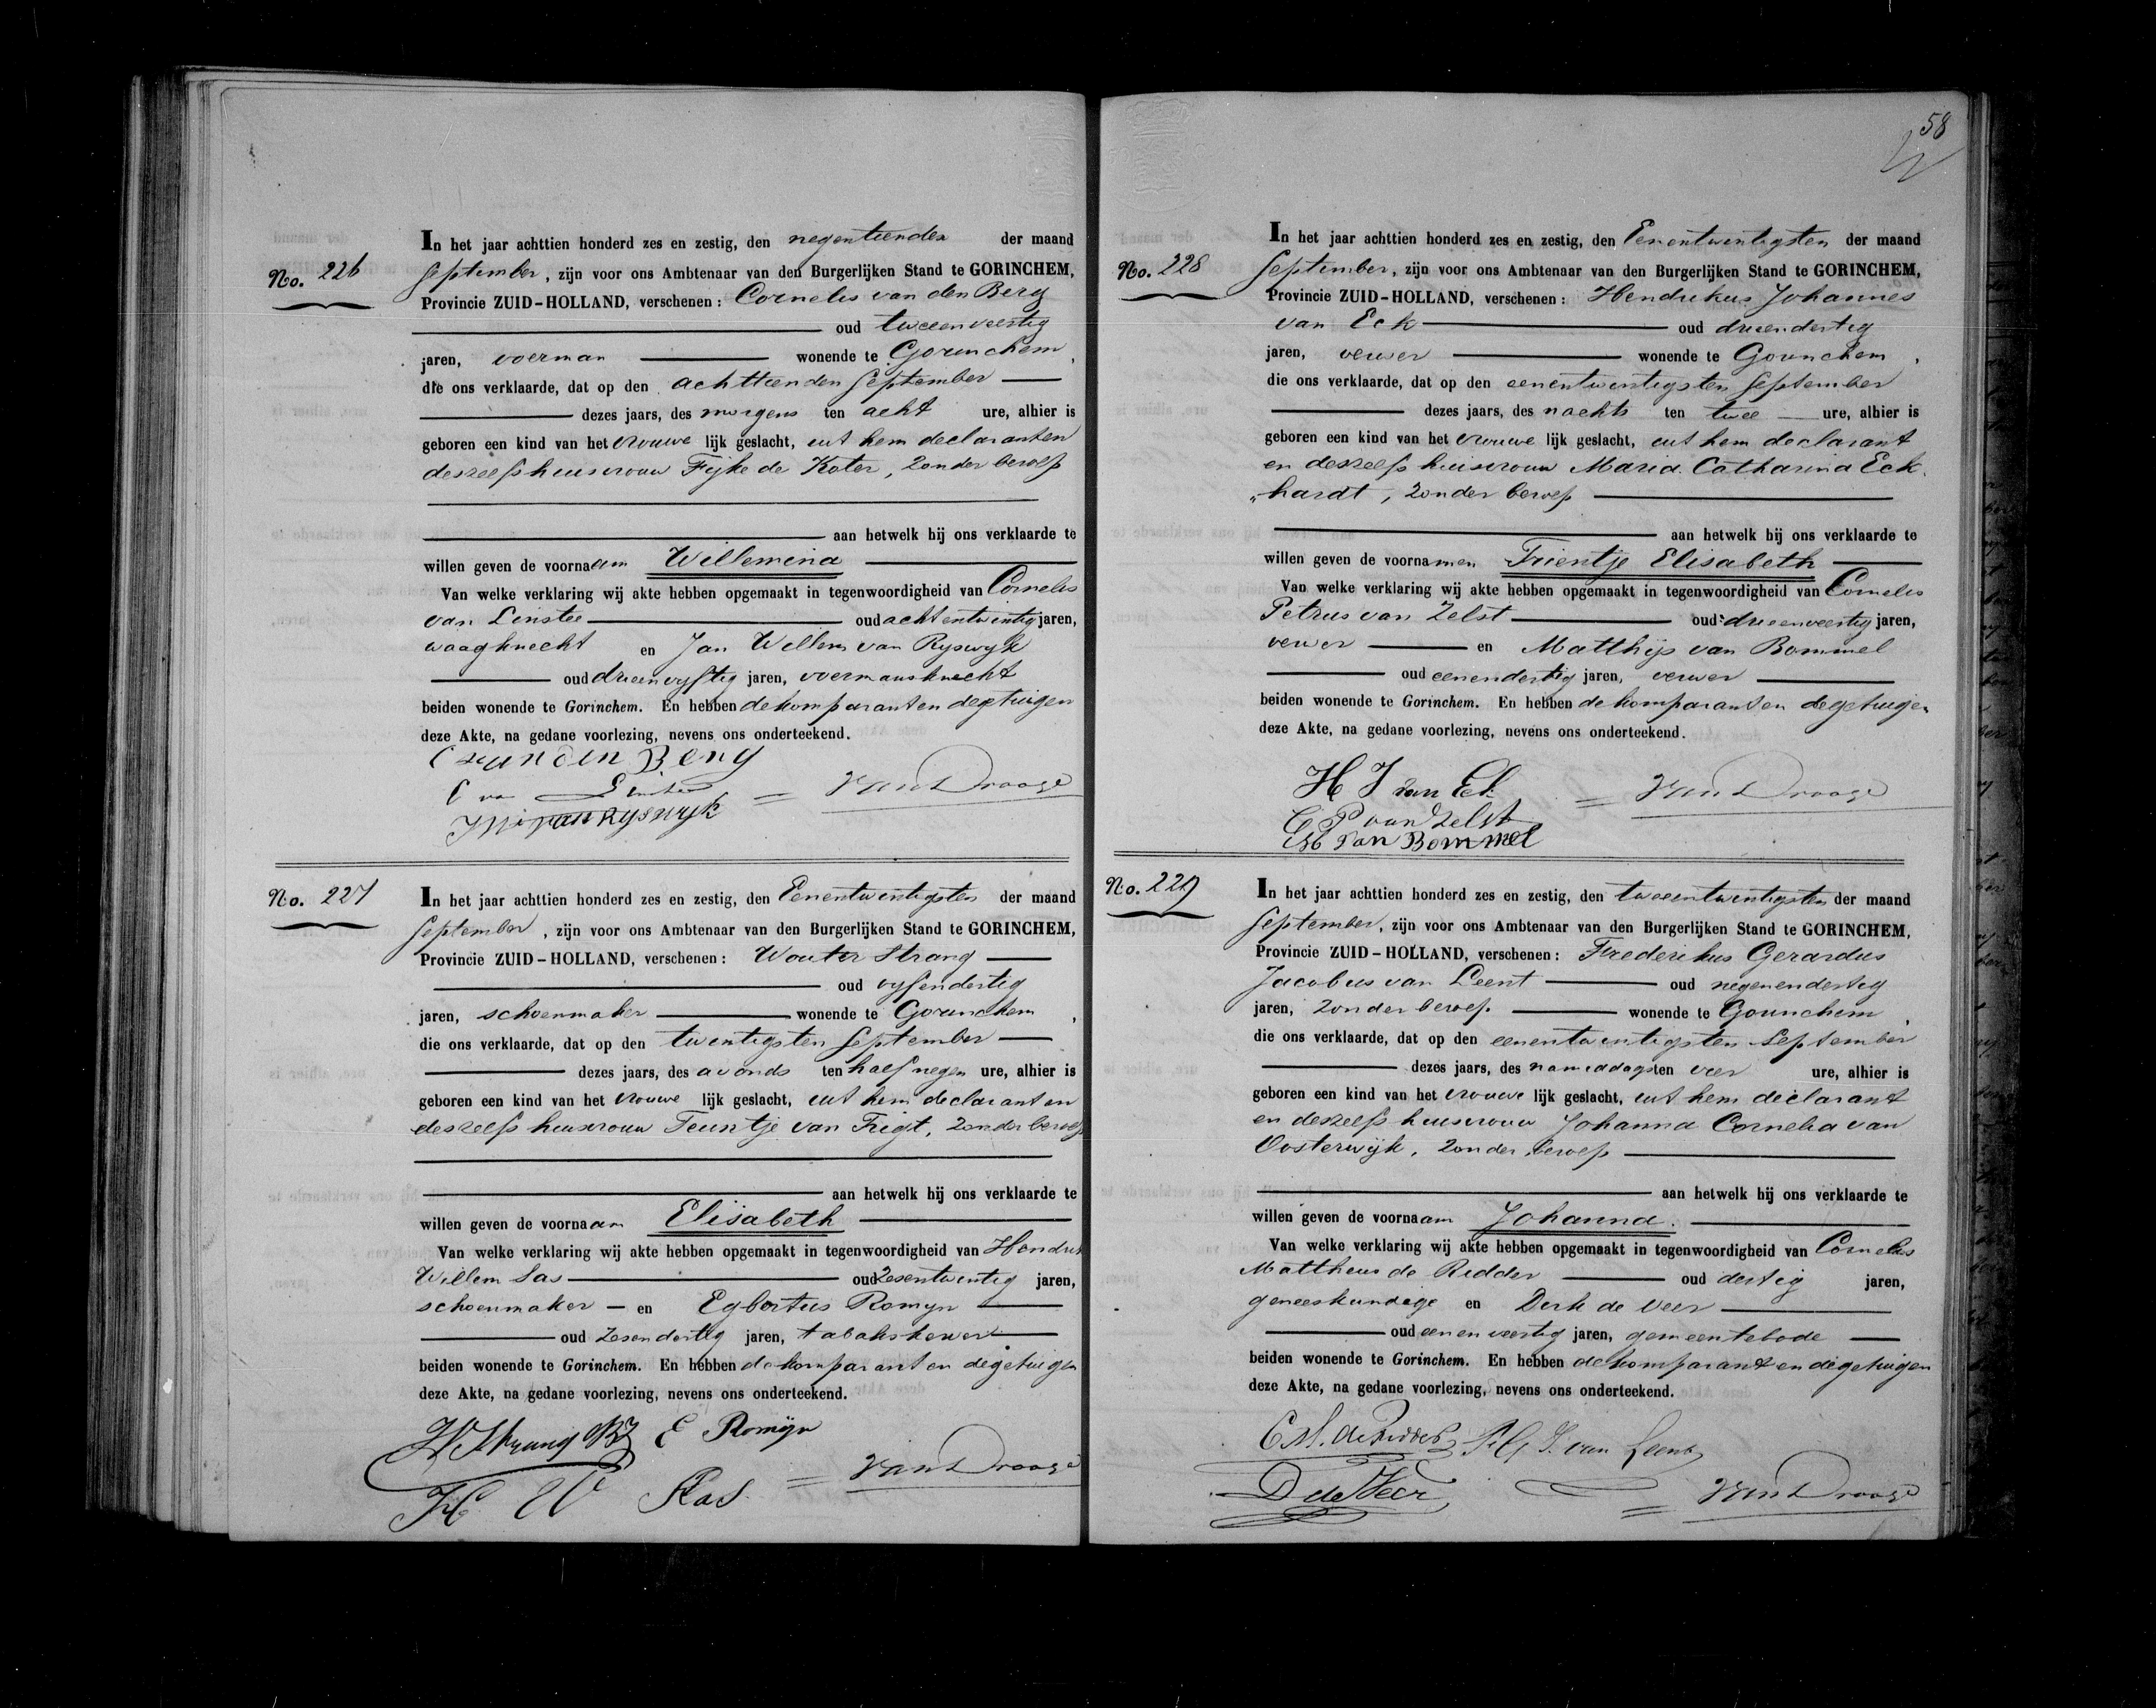 No. 226
In het jaar achttien honderd zes en zestig, den negentienden der maand
September, zijn voor ons Ambtenaar van den Burgerlijken Stand te GORINCHEM,
Provincie ZUID-HOLLAND, verschenen: Cornelis van den Berg
oud tweeenveertig
jaren, voerman wonende te Gorinchem,
die ons verklaarde, dat op den achttienden September
dezes jaars, des morgens ten acht ure, alhier is
geboren een kind van het vrouwelijk geslacht, uit hem declarant en
deszelfs huisvrouw Fijke de Koter, zonder beroep
aan hetwelk hij ons verklaarde te
willen geven de voornaam Willemina
Van welke verklaring wij akte hebben opgemaakt in tegenwoordigheid van Cornelis
van Linstee oud achtentwintig jaren,
waagknecht en Jan Willem van Ryswyk
oud drieenvyftig jaren, voermansknecht
beiden wonende te Gorinchem. En hebben de komparant en de getuigen
deze Akte, na gedane voorlezing, nevens ons onderteekend.
C van den Berg
C van Linstee = van Drooge
JW van Ryswyk
No. 227
In het jaar achttien honderd zes en zestig, den Eenentwintigsten der maand
September, zijn voor ons Ambtenaar van den Burgerlijken Stand te GORINCHEM,
Provincie ZUID-HOLLAND, verschenen: Wouter Strang
oud vyfendertig
jaren, schoenmaker wonende te Gorinchem,
die ons verklaarde, dat op den twintigsten September
dezes jaars, des avonds ten half negen ure, alhier is
geboren een kind van het vrouwelijk geslacht, uit hem declarant en
deszelfs huisvrouw Teuntje van Frigt, zonder beroep
aan hetwelk hij ons verklaarde te
willen geven de voornaam Elisabeth
Van welke verklaring wij akte hebben opgemaakt in tegenwoordigheid van Hendrik
Willem Sas oud zesentwintig jaren,
schoenmaker en Egbertus Romyn
oud zesendertig jaren, tabakskerver
beiden wonende te Gorinchem. En hebben de komparant en de getuigen
deze Akte, na gedane voorlezing, nevens ons onderteekend.
W Strang E Romijn
H W Sas = van Drooge
58
No. 228
In het jaar achttien honderd zes en zestig, den Eenentwintigsten der maand
September, zijn voor ons Ambtenaar van den Burgerlijken Stand te GORINCHEM,
Provincie ZUID-HOLLAND, verschenen: Hendrikus Johannes
van Eck oud drieendertig
jaren, verwer wonende te Gorinchem,
die ons verklaarde, dat op den eenentwintigsten September
dezes jaars, des nachts ten twee ure, alhier is
geboren een kind van het vrouwelijk geslacht, uit hem declarant
en deszelfs huisvrouw Maria Catharina Eck-
"hardt, zonder beroep
aan hetwelk hij ons verklaarde te
willen geven de voornamen Trientje Elisabeth
Van welke verklaring wij akte hebben opgemaakt in tegenwoordigheid van Cornelis
Petrus van Zelst oud drieenveertig jaren,
verwer en Matthijs van Bommel
oud eenendertig jaren, verwer
beiden wonende te Gorinchem. En hebben de komparant en de getuigen
deze Akte, na gedane voorlezing, nevens ons onderteekend.
H J van Ek
C P van Zelst = van Drooge
M van Bommel
No. 229
In het jaar achttien honderd zes en zestig, den tweeentwintigsten der maand
September, zijn voor ons Ambtenaar van den Burgerlijken Stand te GORINCHEM,
Provincie ZUID-HOLLAND, verschenen: Frederikus Gerardus
Jacobus van Leent oud negenendertig
jaren, zonder beroep wonende te Gorinchem,
die ons verklaarde, dat op den eenentwintigsten September
dezes jaars, des namiddags ten vier ure, alhier is
geboren een kind van het vrouwelijk geslacht, uit hem declarant
en deszelfs huisvrouw Johanna Cornelia van
Oosterwijk, zonder beroep
aan hetwelk hij ons verklaarde te
willen geven de voornaam Johanna.
Van welke verklaring wij akte hebben opgemaakt in tegenwoordigheid van Cornelis
Mattheus de Ridder oud dertig jaren,
geneeskundige en Derk de Veer
oud eenenveertig jaren, gemeentebode
beiden wonende te Gorinchem. En hebben de komparant en de getuigen
deze Akte, na gedane voorlezing, nevens ons onderteekend.
C M. de Ridder F. G. J. van Leent
D de Veer = van Drooge